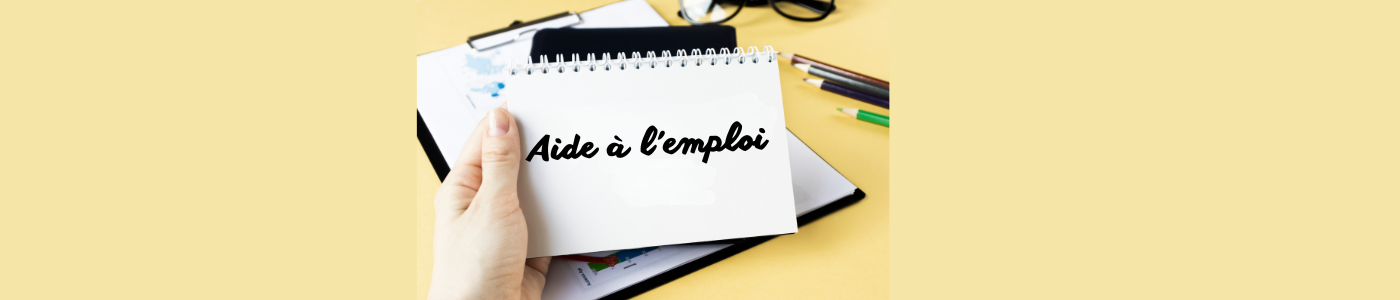 Aide à l'emploi